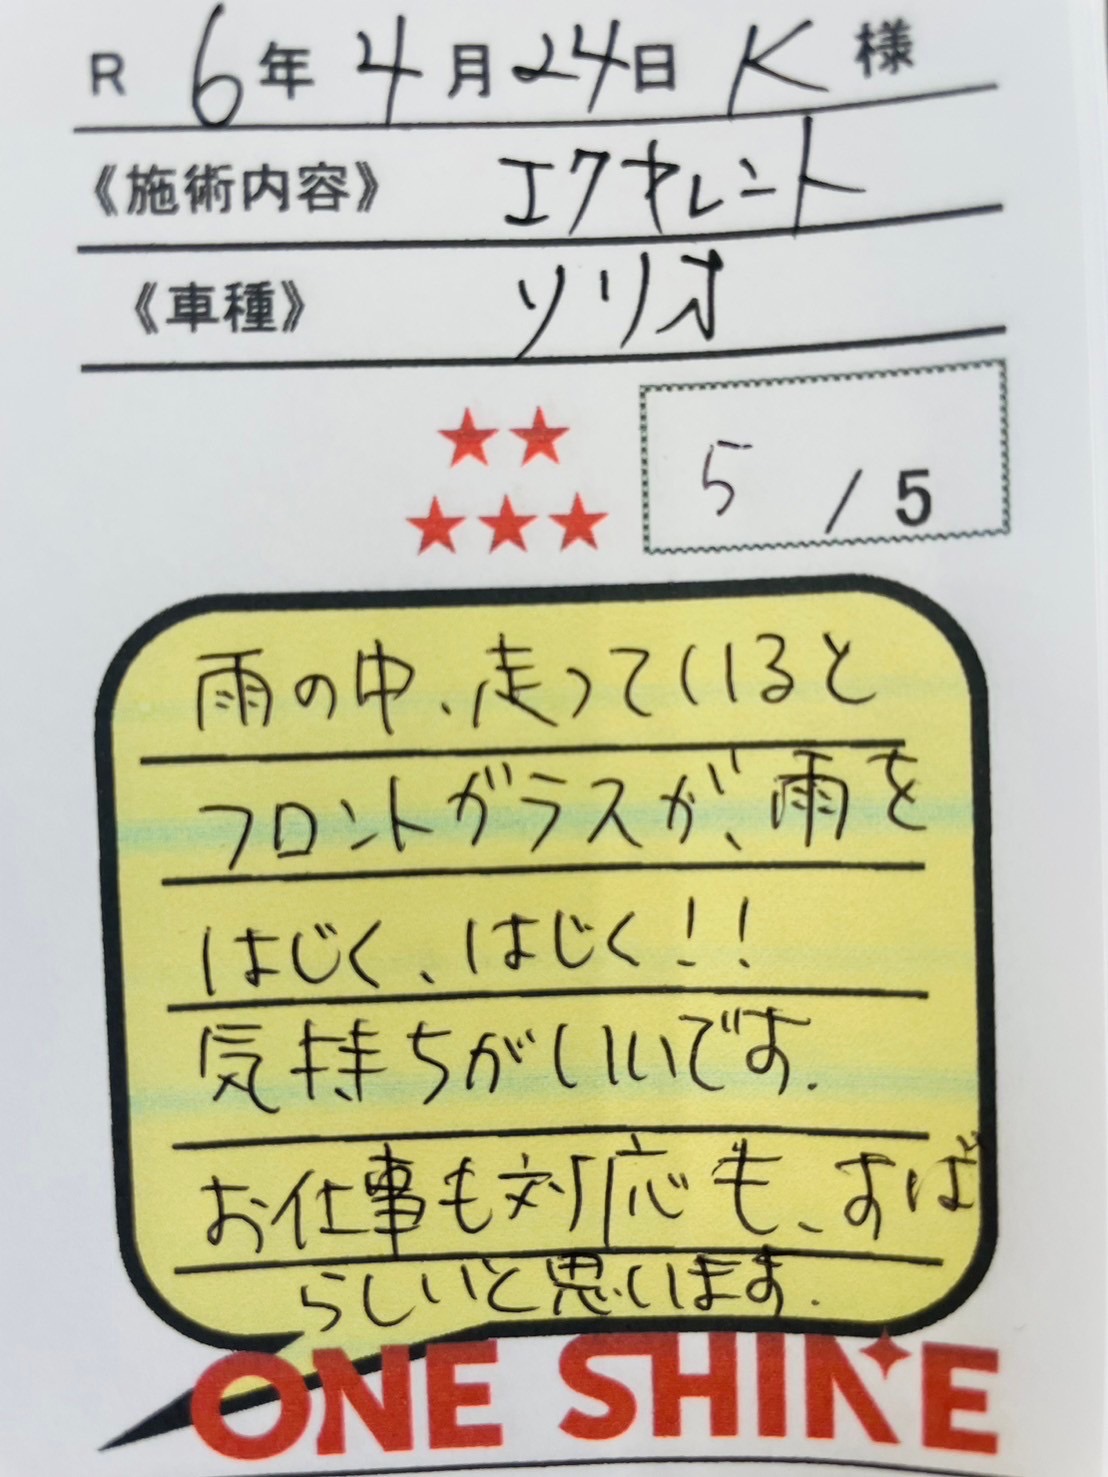 R 6年 4月 24日 K 様
《施術内容》 エクセレント
《車種》 ソリオ
5 / 5
雨の中、走っていると
フロントガラスが、雨を
はじく、はじく!!
気持ちがいいです.
お仕事も対応も、すば
らしいと思います.
ONE SHINE